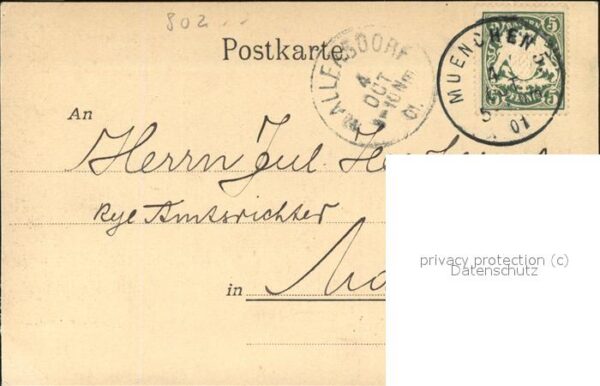 802
Postkarte
ALLERSDORF
4
OCT
01
MUENCHEN 5
4
01
5
5
PFENNIG
An
Herrn Jul.
kgl Amtsrichter
in
privacy protection (c)
Datenschutz